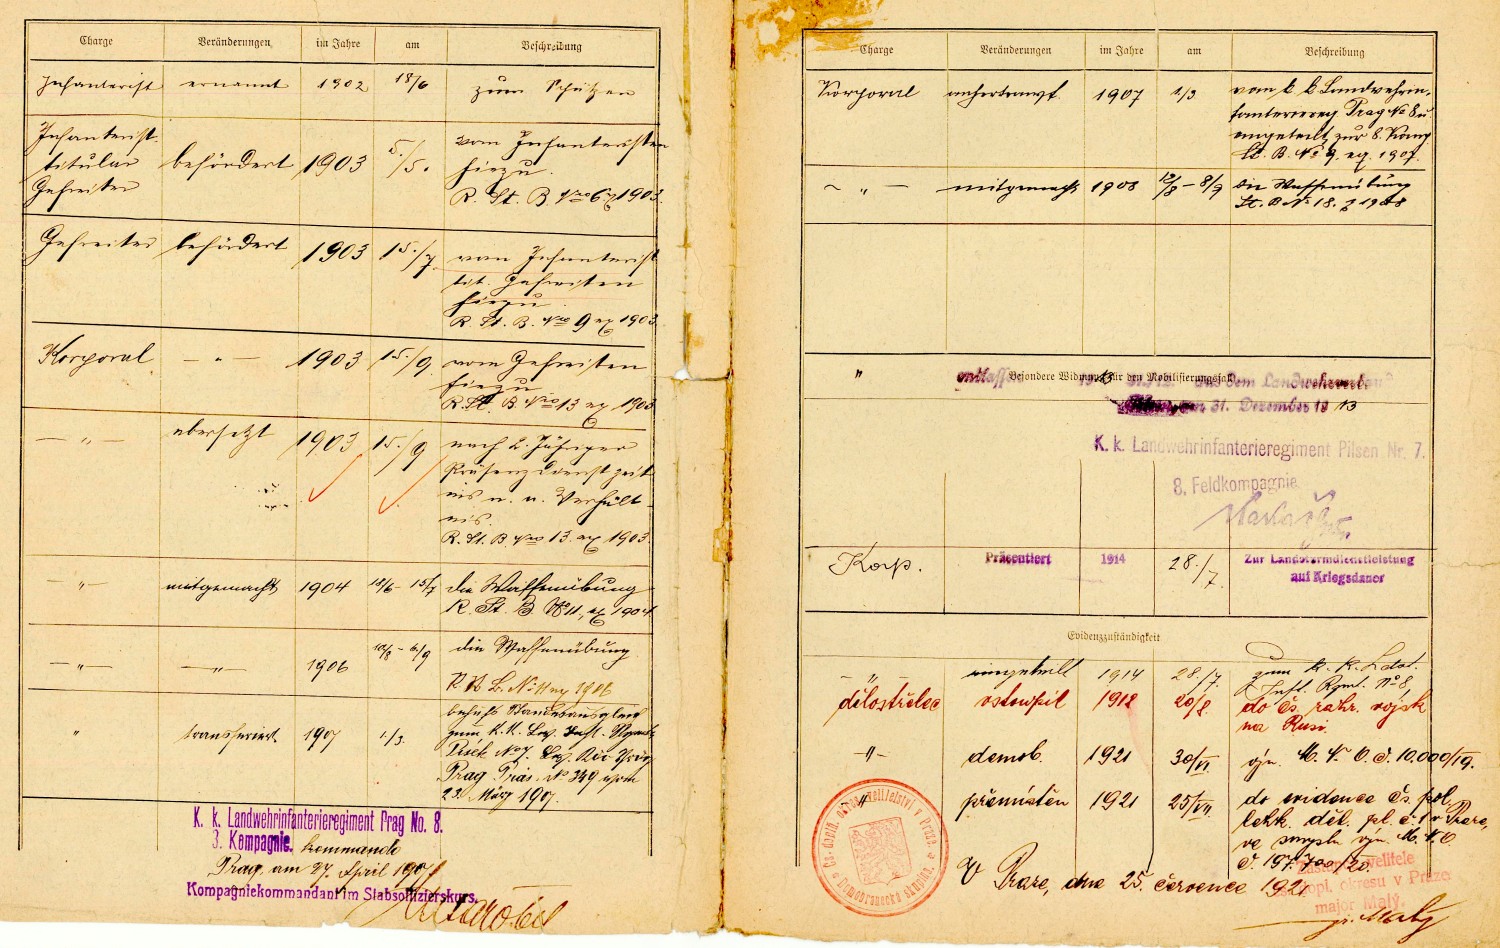 Charge Veränderungen im Jahre am Beschreibung
Infanterist ernannt 1902 18/6 zum Schützen
Infanterist
titular
Gefreiter
befördert 1903 5./5.
vom Infanteristen
hiezu.
R. St. B. Nro 6 ex 1903.
Gefreiter befördert 1903 15./7.
vom Infanterist
tit. Gefreiten
hiezu.
R. St. B. Nro 9 ex 1903.
Korporal — " — 1903 15./9.
vom Gefreiten
hiezu
R. St. B. Nro 13 ex 1903.
— " — übersetzt 1903 15./9
nach 2. Jähriger
Präsenzdienstzeit
nis.
R. St. B Nro 13. ex 1903.
— " — mitgemacht 1904 18/6 - 15/7
die Waffenübung
R. St. B No 11, ex 1904.
— " — — " — 1906 10/8 - 6/9
die Waffenübung.
" transferiert. 1907 1./3.
behufs Standesausgleich
Prag Präs. No 349 vom
23. März 1907.
K. k. Landwehrinfanterieregiment Prag No. 8.
3. Kompagnie. kommando
Prag, am 27. April 1907
Kompagniekommandant im Stabsoffizierskurs.
Charge Veränderungen im Jahre am Beschreibung
Korporal 1907 1/3
vom k k Landwehrin-
fanteriereg Prag No 8 u.
eingeteilt zur 8. Komp
St. B. No 9. ex. 1907.
— " — mitgemacht 1908 12/8 - 8/9
die Waffenübung
St. B No 18. ex 1908
"
Besondere Widmung für den Mobilisierungsfall
aus dem Landwehrverband
31. Dezember 1913
K. k. Landwehrinfanterieregiment Pilsen Nr. 7.
8. Feldkompagnie
Korp. Präsentiert 1914 28./7.
Zur Landsturmdienstleistung
auf Kriegsdauer
Evidenzzuständigkeit
— " — eingeteilt 1914 28./7.
zum k. k. Ldst.
Inft. Rgmt. No 8
dělostřelec vstoupil 1918 20/8.
do čs. zahr. vojsk
na Rusi.
— " — demob. 1921 30/VI.
výn. M. N. O. č. 10.000/19.
" přemístěn 1921 25/VII.
do evidence čs. pol.
lehk. děl. pl. č. 1 v Praze,
ve smyslu výn. M. N. O.
č. 197.700/20.
V Praze, dne 25. července 1921
velitele
dopl. okresu v Praze
major Malý.
Malý